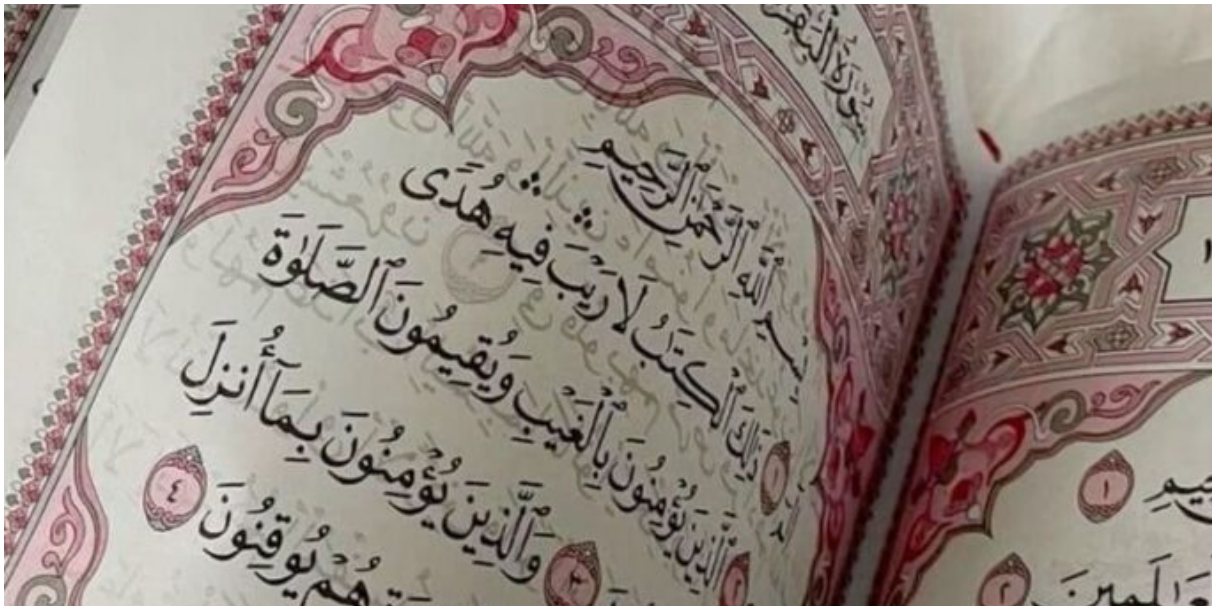 ١
سُورَةُ الْبَقَرَةِ
بِسْمِ ٱللَّهِ ٱلرَّحْمَٰنِ ٱلرَّحِيمِ
١ ذَٰلِكَ ٱلْكِتَٰبُ لَا رَيْبَ ۛ فِيهِ ۛ هُدًى
٢ ٱلَّذِينَ يُؤْمِنُونَ بِٱلْغَيْبِ وَيُقِيمُونَ ٱلصَّلَوٰةَ
٣ وَٱلَّذِينَ يُؤْمِنُونَ بِمَآ أُنزِلَ
هُمْ يُوقِنُونَ ٤